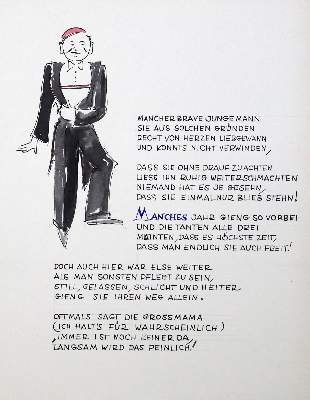 MANCHER BRAVE JUNGE MANN
SIE AUS SOLCHEN GRÜNDEN
RECHT VON HERZEN LIEBGEWANN
UND KONNTS NICHT VERWINDEN,
DASS SIE OHNE DRAUF ZU ACHTEN
LIESS IHN RUHIG WEITERSCHMACHTEN
NIEMAND HAT ES JE GESEHN,
DASS SIE EINMAL NUR BLIEB STEHN!
MANCHES JAHR GIENG SO VORBEI
UND DIE TANTEN ALLE DREI
MEINTEN, DASS ES HÖCHSTE ZEIT,
DASS MAN ENDLICH SIE AUCH FREIT!
DOCH AUCH HIER WAR ELSE WEITER
ALS MAN SONSTEN PFLEGT ZU SEIN,
STILL, GELASSEN, SCHLICHT UND HEITER
GIENG SIE IHREN WEG ALLEIN.
OFTMALS SAGT DIE GROSSMAMA
(ICH HALT'S FÜR WAHRSCHEINLICH)
„IMMER IST NOCH KEINER DA,
LANGSAM WIRD DAS PEINLICH!"